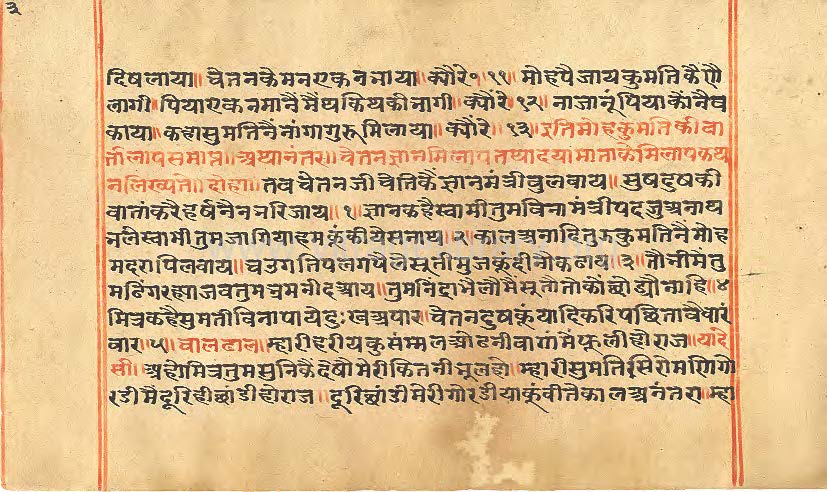 ३
दिषलाया॥ चेतनकै मन एक न भाया॥ क्यौंरे॰ ११॥ मोहपै जाय कुमति कैसै
लागी॥ पियाएक न मानै मैं थकि थकी नागी॥ क्यौंरे॰ १२॥ ना जानूं पिया कौंनै ब
काया॥ कहा सुमतिनैं नांगा गुरु मिलाया॥ क्यौंरे॰॥ १३॥ इति मोह कुमति की वा
र्तालाप समाप्त॥ अथानंतर॥ चेतन ज्ञान मिलाप तथा दया माता के मिलाप कथ
न लिख्यते॥ दोहा॥ तब चेतनजी चेतिकैं ज्ञान मंत्री बुलवाय॥ सुष दुष की
वार्ता करै हर्ष नैन नरिजाय॥ १॥ ज्ञान कहै स्वामी तुम विना मंत्री पद जु अनाथ
नलै स्वामी तुम जागिया हमकूं कीये सनाथ॥ २॥ काल अनादि तुरु कुमतिनैं मोह
मदरा पिलवाय॥ चउगति पलग पै लै सूती मुज कूं दीनौ कढाय॥ ३॥ तौ नी मै तु
म ढिंग रह्या जब तुम भ्रम नीद आय॥ तुम निद्रा मै लौ मैं सूतो तो कों छोड्यौ नाहि॥ ४
मित्र कहै सुमती विना पाये दुःख अपार॥ चेतन दुष कूं यादि करि पछितावै धारं
वार॥ ५॥ चाल ढाल॥ म्हारी हरीयकुसंम्मल ओढनी वागां मैं फूली हो राज॥ यां दे
सी॥ अहो मित्र तुम सुनिकैं देषौ मेरी कितनी भूल हो॥ म्हारी सुमति सिरोमणि गो
रडी मै दूरि ही छाडी हो राज॥ दूरि छांडी मेरी गोरडी या कूं वीतै काल अनंत रा॥ म्हा